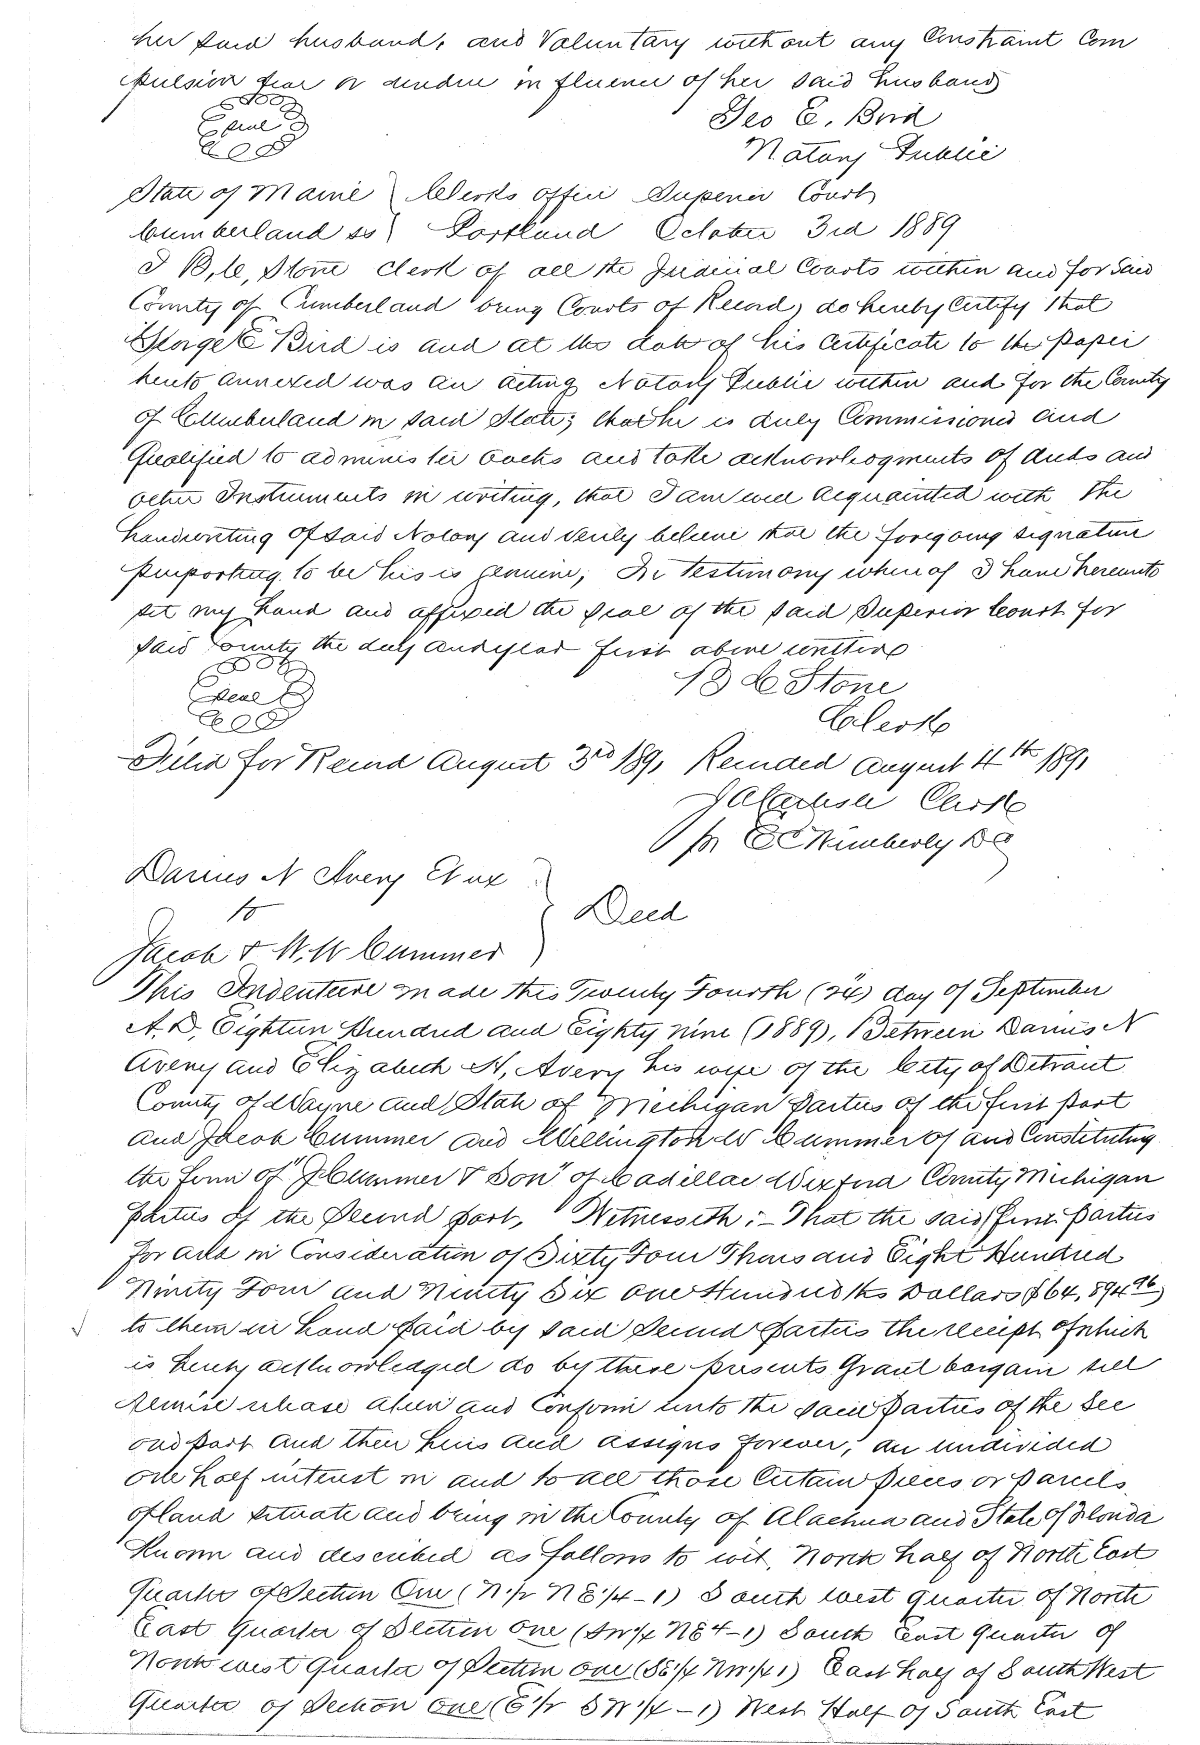 her said husband, and Voluntary without any Constraint Com
pulsion fear or undue influence of her said husband
Seal
Geo E. Bird
Notary Public
State of Maine } Clerks office Superior Court
Cumberland ss } Portland October 3rd 1889
I B, C, Stone clerk of all the Judicial Courts within and for said
County of Cumberland being Courts of Record, do hereby Certify that
George E Bird is and at the date of his Certificate to the paper
hereto annexed was an acting Notary Public within and for the County
of Cumberland in said State; that he is duly Commissioned and
Qualified to administer oaths and take acknowledgments of deeds and
other Instruments in writing, that I am well acquainted with the
handwriting of said Notary and Verily believe that the foregoing signature
purporting to be his is genuine; In testimony whereof I have hereunto
set my hand and affixed the seal of the said Superior Court for
said County the day and year first above written
Seal
B C Stone
Clerk
Filed for Record August 3rd 1891 Recorded August 4th 1891
J A Carlisle Clerk
pr E C Wimberly DC
Darius N Avery Et ux
to } Deed
Jacob & W. W Cummer
This Indenture made this Twenty Fourth (24) day of September
A. D, Eighteen Hundred and Eighty nine (1889), Between Darius N
Avery and Elizabeth H, Avery his wife of the City of Detroit
County of Wayne and State of Michigan Parties of the first part
and Jacob Cummer and Wellington W Cummer of and Constituting
the firm of "J Cummer & Son" of Cadillac Wexford County Michigan
Parties of the Second part, Witnesseth:- That the said first Parties
for and in Consideration of Sixty Four Thousand Eight Hundred
Ninety Four and Ninety Six one Hundredths Dollars $64,894 96)
to them in hand paid by said Second Parties the receipt of which
is hereby acknowledged do by these presents Grant bargain sell
remise release alien and Confirm unto the said Parties of the Sec
ond part and their heirs and assigns forever, an undivided
one half interest in and to all those Certain pieces or parcels
of land situate and being in the County of Alachua and State of Florida
Known and described as follows to wit, North half of North East
Quarter of Section One (N 1/2 N E 1/4 - 1) South West Quarter of North
East Quarter of Section One (SW 1/4 NE 4 - 1) South East Quarter of
North west Quarter of Section one (SE 1/4 NW 1/4 1) East half of South West
Quarter of Section One (E 1/2 S W 1/4 - 1) West Half of South East